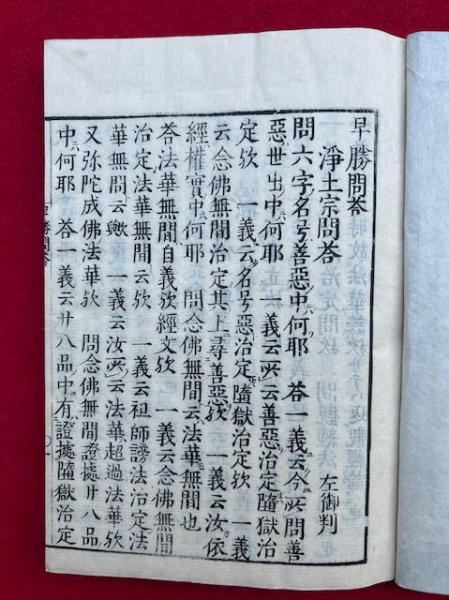 早勝問答
淨土宗問答　　左御判
問六字名号善惡中何耶　答一義云今所問善
惡世出中何耶　一義云所云善惡治定隨獄治
定欤　一義云名号惡治定隨獄治定欤　一義
云念佛無間治定其上尋善惡欤　一義云汝依
經權實中何耶　問念佛無間云法華無間也
答法華無間自義欤經文欤　一義云念佛無間
治定法華無間云欤　一義云祖師謗法治定法
華無間云欤　一義云汝所云法華超過法華欤
又弥陀成佛法華欤　問念佛無間證據廿八品
中何耶　答一義云廿八品中有證據隨獄治定